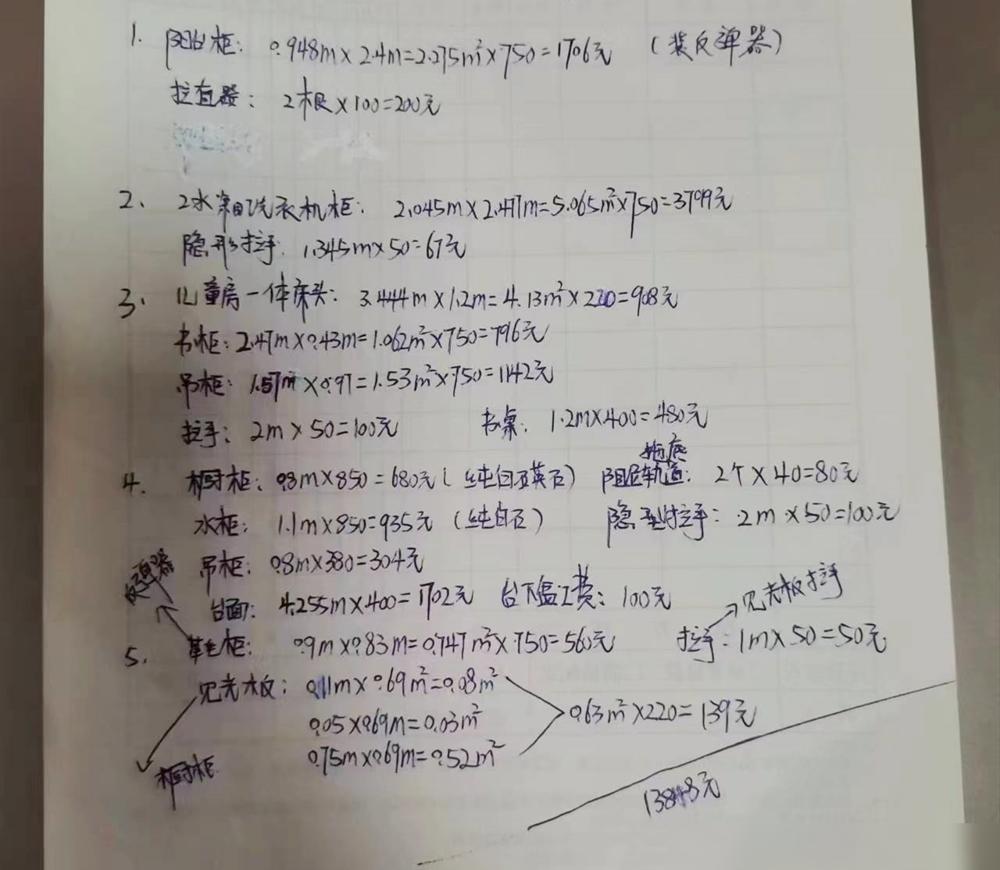 1. 阳台柜: 0.948m×2.4m=2.275m²×750=1706元 (装反弹器)
拉直器: 2根×100=200元
2、 2水案自洗衣机柜: 2.045m×2.477m=5.065m²×750=3799元
隐形拉手: 1.345m×50=67元
3、 儿童房一体床头: 3.444m×1.2m=4.13m²×220=908元
书柜: 2.47m×0.43m=1.062m²×750=796元
吊柜: 1.57m×0.97=1.53m²×750=1142元
拉手: 2m×50=100元 书桌: 1.2m×400=480元
4、 橱柜: 0.8m×850=680元 (纯白石英石) 阻尼拖底轨道: 2个×40=80元
水柜: 1.1m×850=935元 (纯白石) 隐型拉手: 2m×50=100元
吊柜: 0.8m×380=304元
反弹器
台面: 4.255m×400=1702元 台下盆工费: 100元
见光板拉手
5、 鞋柜: 0.9m×0.83m=0.747m²×750=560元 拉手: 1m×50=50元
见光板: 0.11m×0.69m²=0.08m²
0.05×0.69m=0.03m² 0.63m²×220=139元
0.75m×0.69m=0.52m²
橱柜
13848元